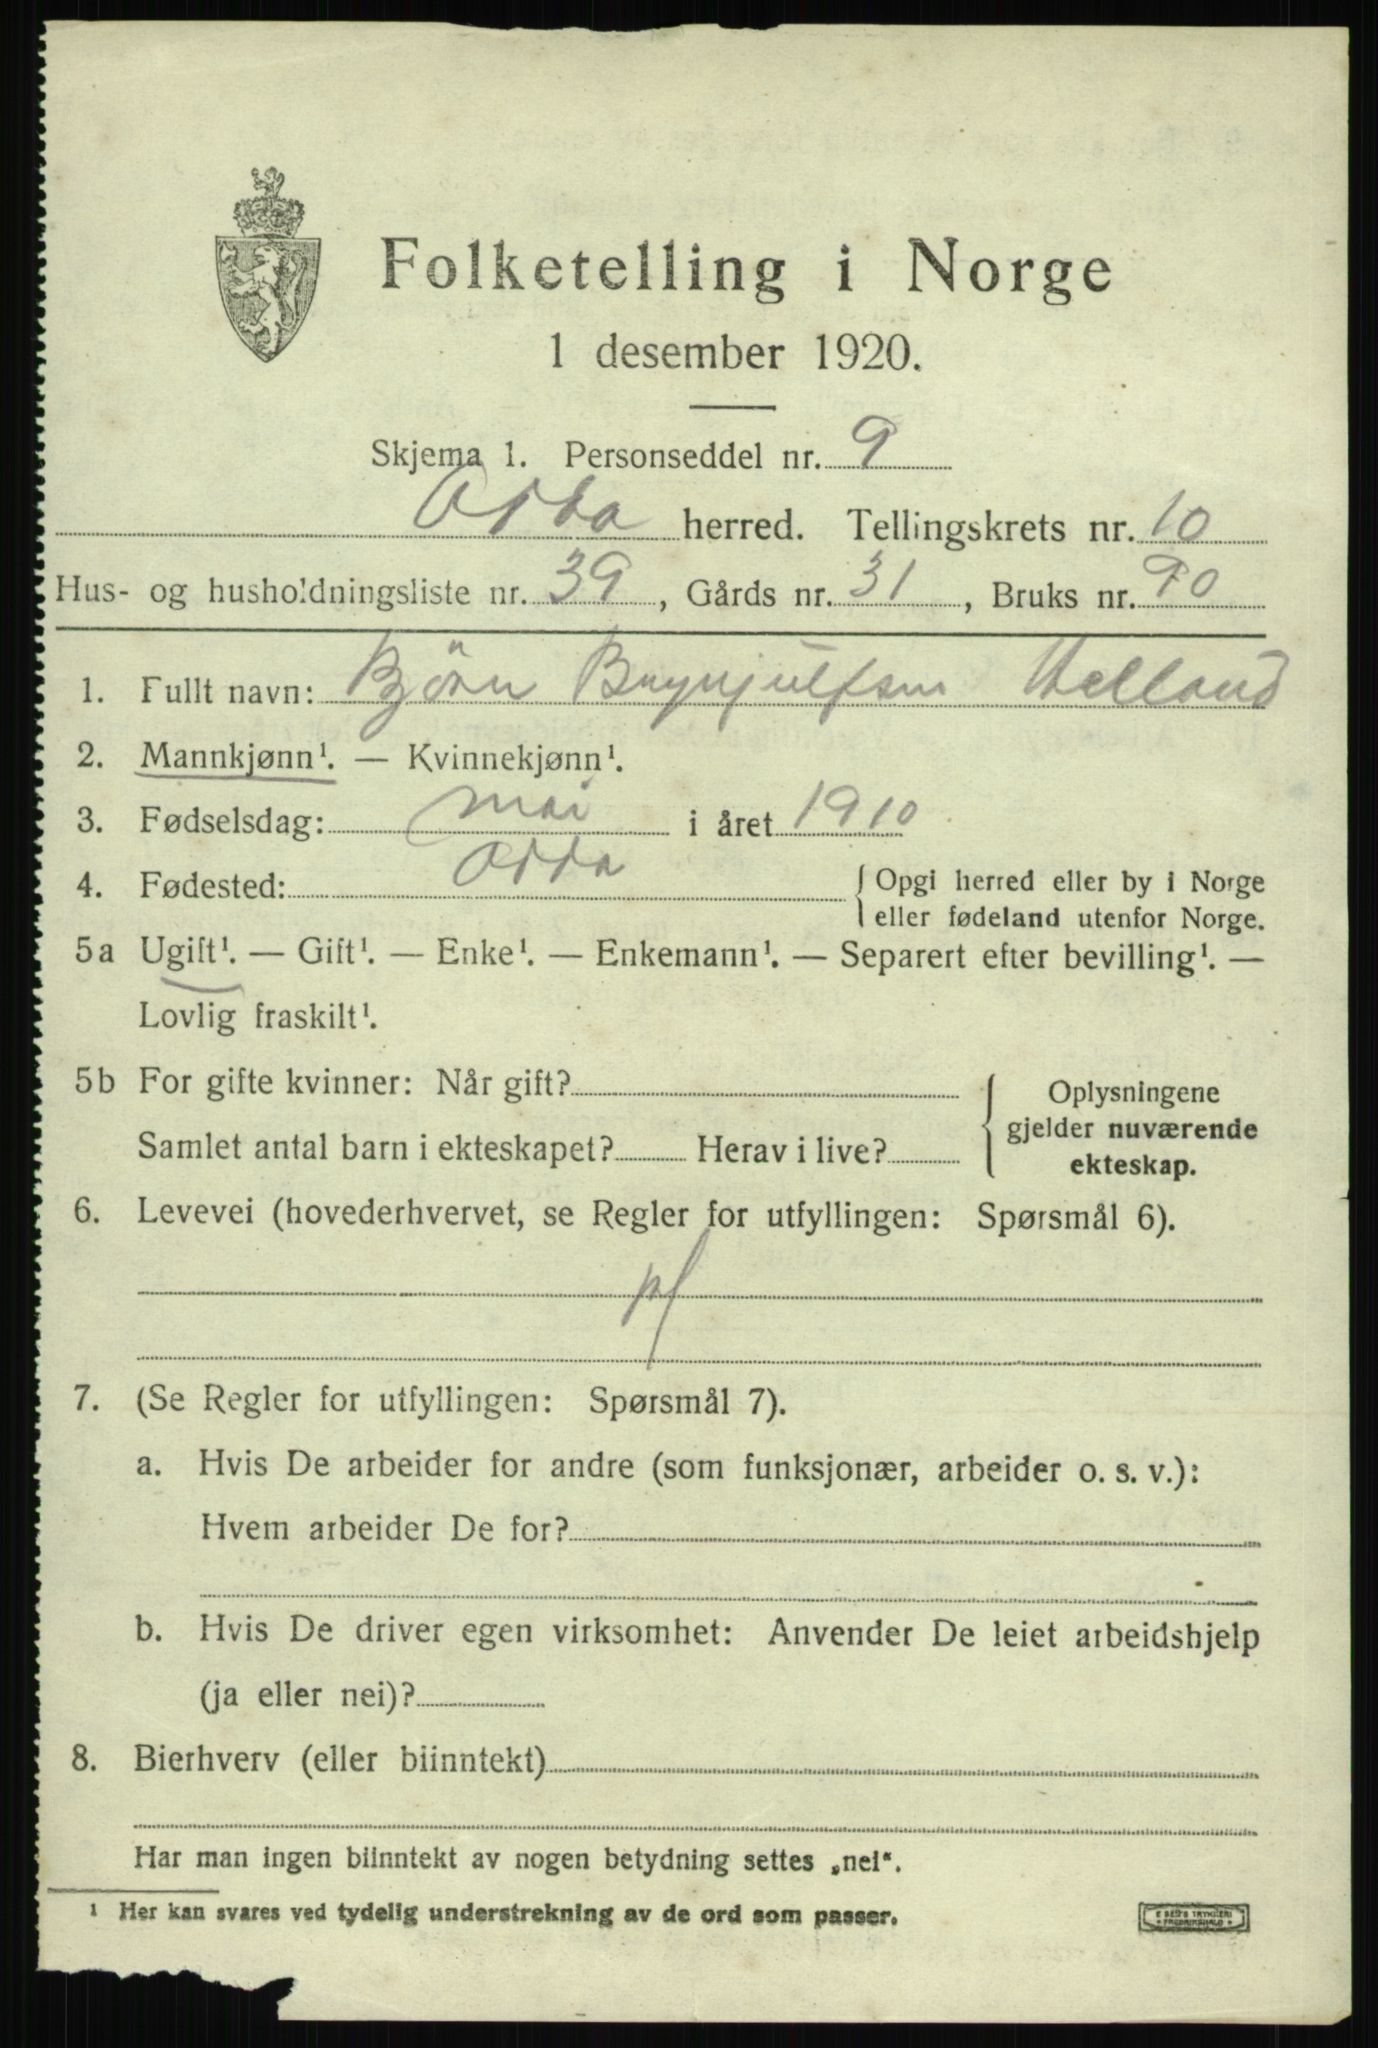 Folketelling i Norge
1 desember 1920.
Skjema 1. Personseddel nr. 9
Odda herred. Tellingskrets nr. 10
Hus- og husholdningsliste nr. 39, Gårds nr. 31, Bruks nr. 90
1. Fullt navn: Björn Brynjulfsen Helland
2. Mannkjønn¹. — Kvinnekjønn¹.
3. Fødselsdag: mai i året 1910
4. Fødested: Odda { Opgi herred eller by i Norge
eller fødeland utenfor Norge.
5a Ugift¹. — Gift¹. — Enke¹. — Enkemann¹. — Separert efter bevilling¹. —
Lovlig fraskilt¹.
5b For gifte kvinner: Når gift? { Oplysningene
gjelder nuværende
Samlet antal barn i ekteskapet? Herav i live? ekteskap.
6. Levevei (hovederhvervet, se Regler for utfyllingen: Spørsmål 6).
pf
7. (Se Regler for utfyllingen: Spørsmål 7).
a. Hvis De arbeider for andre (som funksjonær, arbeider o. s. v.):
Hvem arbeider De for?
b. Hvis De driver egen virksomhet: Anvender De leiet arbeidshjelp
(ja eller nei)?
8. Bierhverv (eller biinntekt)
Har man ingen biinntekt av nogen betydning settes „nei“.
¹ Her kan svares ved tydelig understrekning av de ord som passer.
E SEM'S TRYKKERI
FREDRIKSHALD